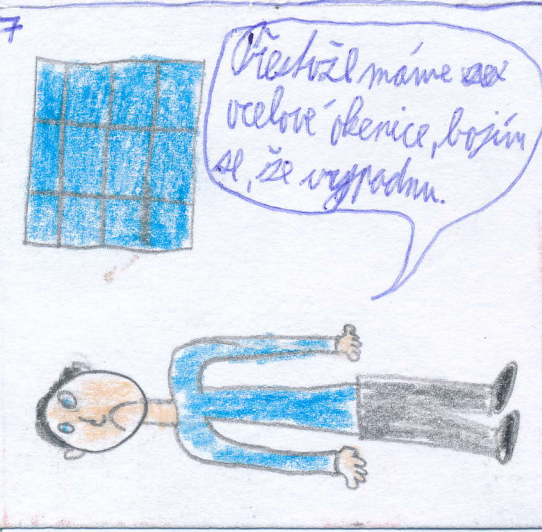 7
Přestože máme
ocelové okenice, bojím
se, že vypadnu.